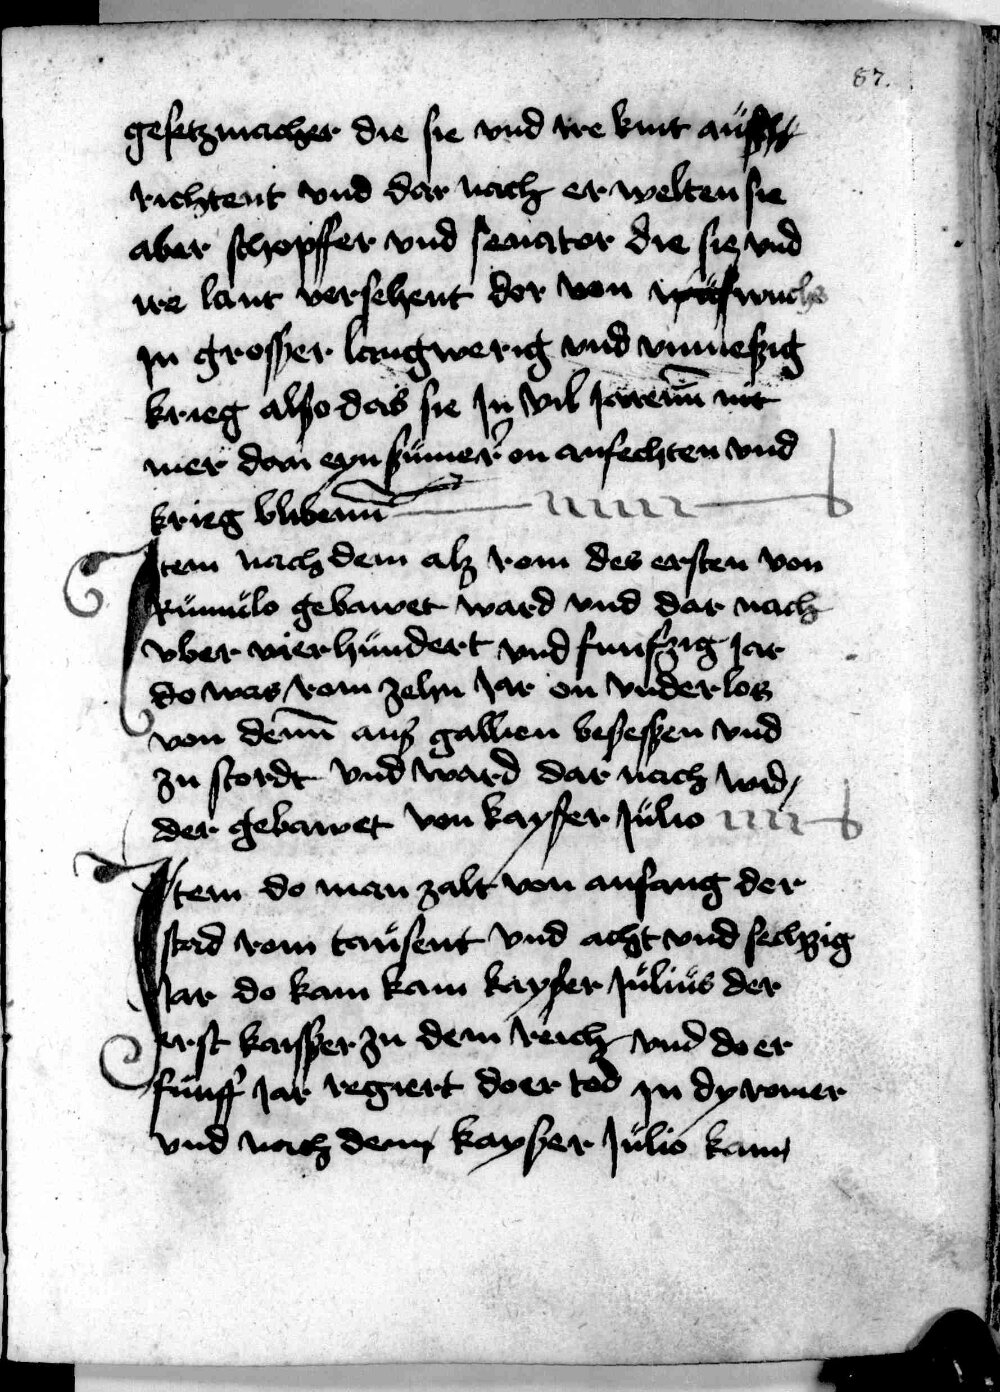 87.
gesetzmacher die sie vnd ire kint
richtent vnd dar nach er welten sie
aber schopffer vnd senator die sie vnd
ire lant versehent dor von wuchs
jn grosßer langwerig vnd vnmeßig
krieg alßo das sie Jn vil Jarenn nit
mer dan eyn sümer on anfechten vnd
krieg blibenn
Item nach dem alz rom des ersten von
Rümülo gebawet ward vnd dar nach
vber vierhündert vnd funfzig Jar
do was rom zehn Jar on vnderlos
von denn auß gallien beseßen vnd
zu stordt vnd ward dar nach wid,
der gebawet von kaysser Jülio
Item do man zalt von anfang der
stad rom taüsent vnd acht vnd sechzig
Jar do kam kam kaysser Jüliüs der
erst kaisßer zu dem reich vnd do er
fünff Jar regiert do er tod jn dy romer
vnd nach dem kaysßer Jülio kam